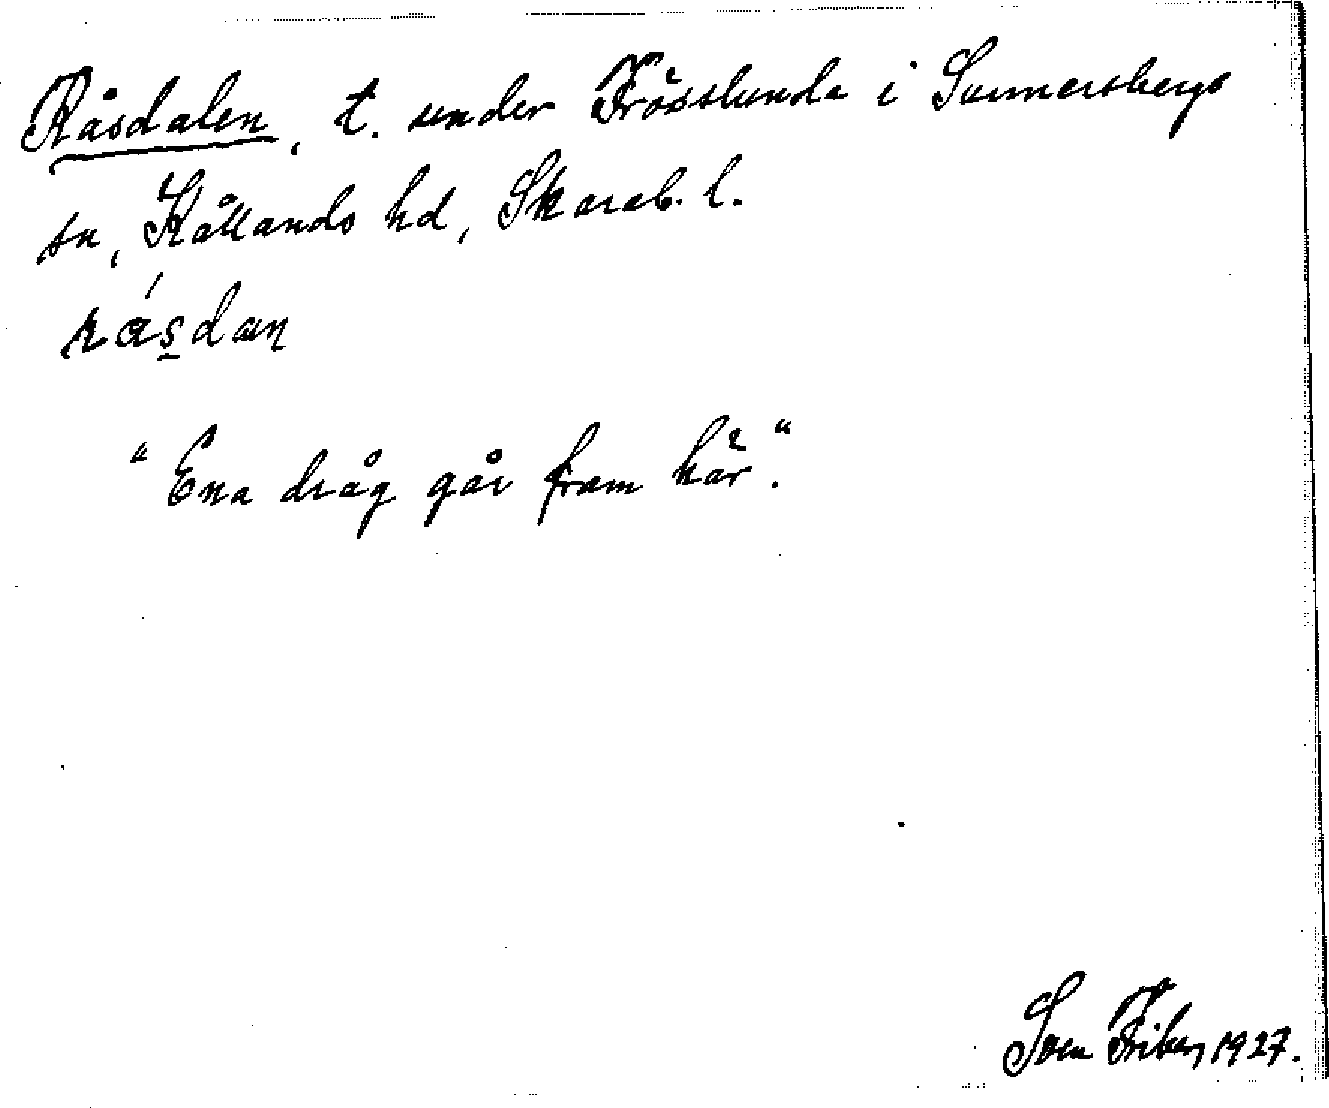 Råsdalen, t. under Frösslunda i Sunnersbergs
sn, Kållands hd, Skarab. l.
råsdan
"Ena dråg går fram här."
Sven Friberg 1927.